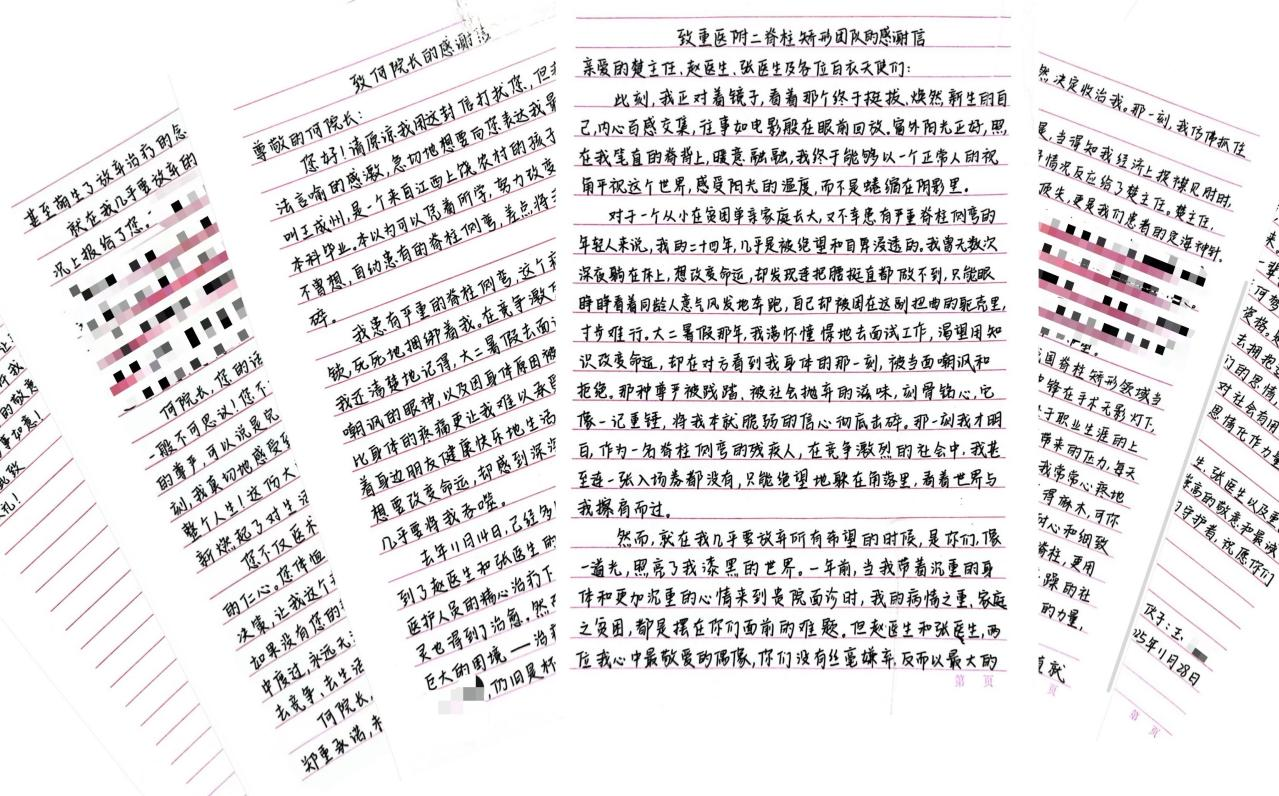 事如意!
致
礼!
甚至萌生了放弃治疗的念
就在我几乎要放弃的
况上报给了您。
何院长,您的话
一般不可思议!您不
的尊严,可以说是兄
刻,我真切地感受到
整个人生!这份大
新燃起了对生活
您不仅医术
的仁心。您体恤
决策,让我这个
如果没有您的
中度过,永远无
去竞争,去生活
何院长,
郑重承诺,未
致何院长的感谢信
尊敬的何院长:
您好!请原谅我用这封信打扰您,但我
法言喻的感激,急切地想要向您表达我最
叫王成州,是一个来自江西上饶农村的孩子
本科毕业。本以为可以凭着所学,努力改变
不曾想,自幼患有的脊柱侧弯,差点将我
碎。
我患有严重的脊柱侧弯,这个病
锁,死死地捆绑着我。在竞争激烈
我还清楚地记得,大二暑假去面试
嘲讽的眼神,以及因身体原因被
比身体的疼痛更让我难以承受
着身边朋友健康快乐地生活
想要改变命运,却感到深深
几乎要将我吞噬。
去年11月14日,已经多
到了赵医生和张医生的
医护人员的精心治疗下
灵也得到了治愈。然而
巨大的困境——治疗
,仍旧是杯
致重医附二脊柱矫形团队的感谢信
亲爱的楚主任、赵医生、张医生及各位白衣天使们:
此刻,我正对着镜子,看着那个终于挺拔、焕然新生的自
己,内心百感交集,往事如电影般在眼前回放。窗外阳光正好,照
在我笔直的脊背上,暖意融融,我终于能够以一个正常人的视
角平视这个世界,感受阳光的温度,而不是蜷缩在阴影里。
对于一个从小在贫困单亲家庭长大,又不幸患有严重脊柱侧弯的
年轻人来说,我的二十四年,几乎是被绝望和自卑浸透的。我曾无数次
深夜躺在床上,想改变命运,却发现连把腰挺直都做不到,只能眼
睁睁看着同龄人意气风发地奔跑,自己却被困在这副扭曲的躯壳里,
寸步难行。大二暑假那年,我满怀憧憬地去面试工作,渴望用知
识改变命运,却在对方看到我身体的那一刻,被当面嘲讽和
拒绝。那种尊严被践踏、被社会抛弃的滋味,刻骨铭心,它
像一记重锤,将我本就脆弱的信心彻底击碎。那一刻我才明
白,作为一名脊柱侧弯的残疾人,在竞争激烈的社会中,我甚
至连一张入场券都没有,只能绝望地躲在角落里,看着世界与
我擦肩而过。
然而,就在我几乎要放弃所有希望的时候,是你们,像
一道光,照亮了我漆黑的世界。一年前,当我带着沉重的身
体和更加沉重的心情来到贵院面诊时,我的病情之重、家庭
之贫困,都是摆在你们面前的难题。但赵医生和张医生,两
位我心中最敬爱的偶像,你们没有丝毫嫌弃,反而以最大的
第 页
然决定收治我。那一刻,我仿佛抓住
是,当得知我经济上捉襟见肘时,
情况反应给了楚主任。楚主任,
顶尖,更是我们患者的定海神针。
国脊柱矫形领域当
锋在手术无影灯下,
于职业生涯的上
带来的压力,每天
我常常心疼地
得麻木,可你
耐心和细致
脊柱,更用
躁的社
的力量,
页
去拥抱
们的恩情,
对社会有用
恩情化作力量
生、张医生以及
崇高的敬意和最诚
守护者,祝愿你们
伙子:王
25年11月28日
第 页